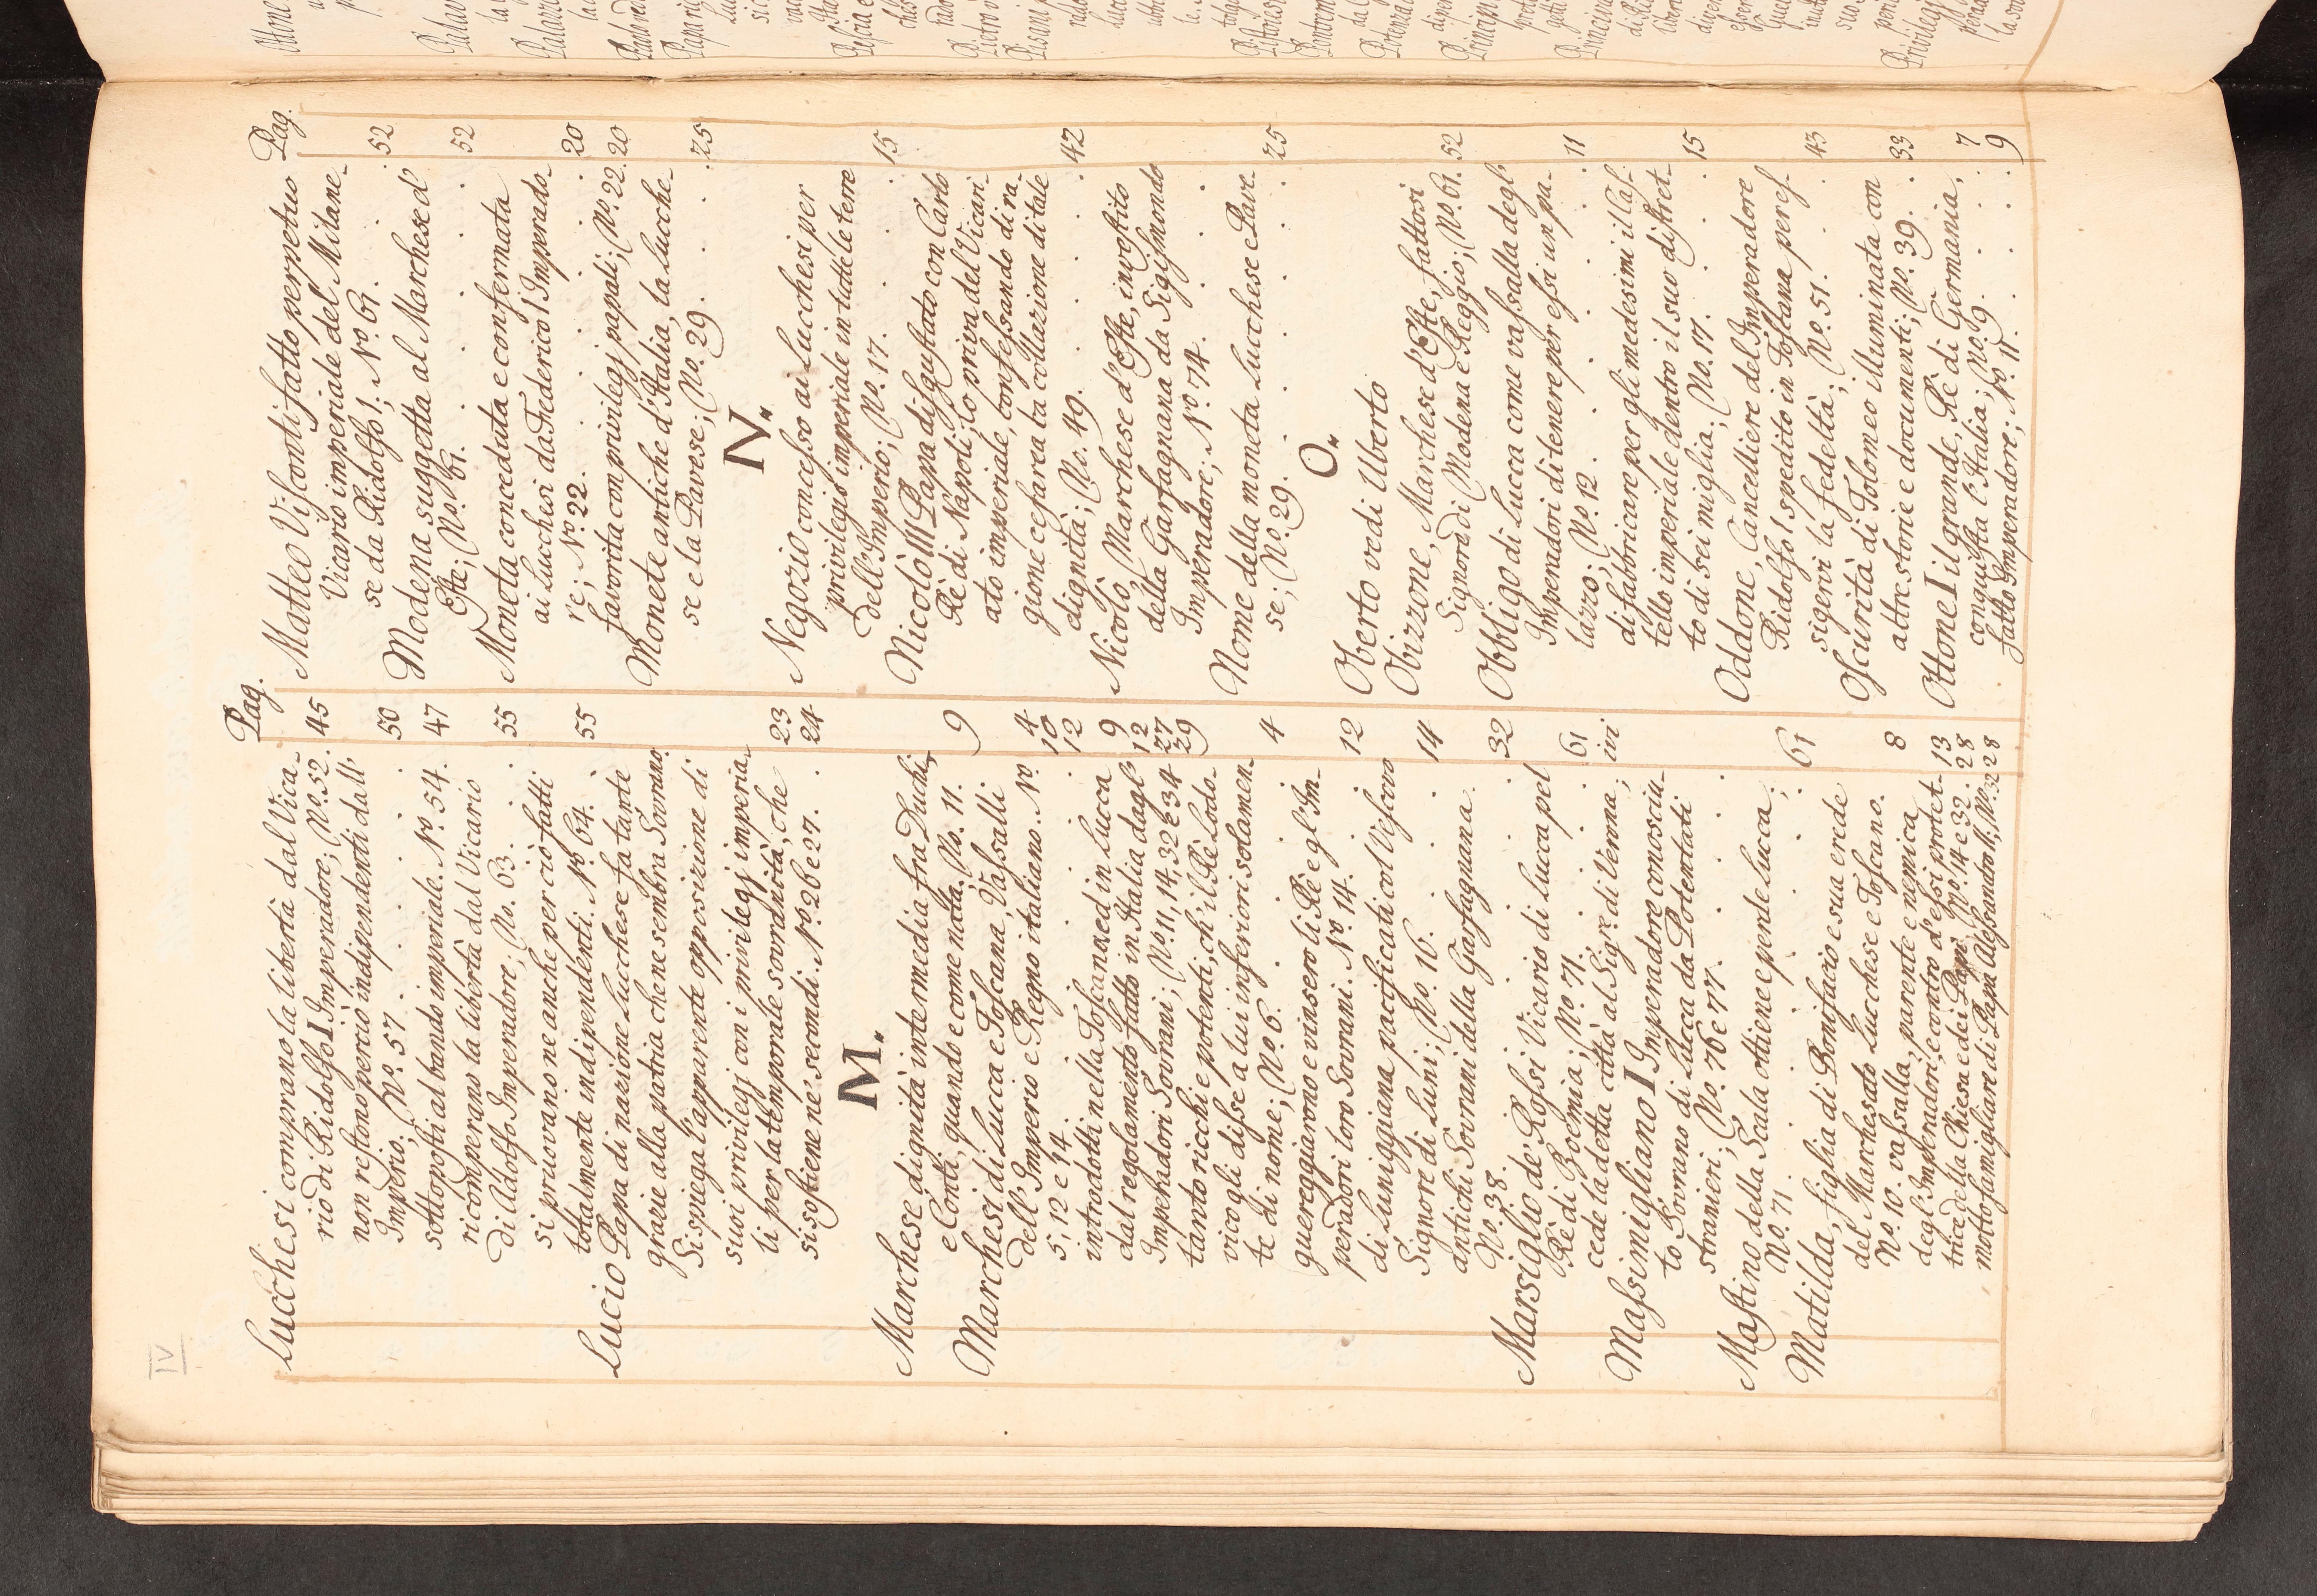 IV
Pag.
Lucchesi comprano la libertà dal Vica-
rio di Ridolfo I Imperadore; No. 52. 45
non restono perciò indipendenti dall'
Imperio; No. 57. 50
sottoposti al bando imperiale. No. 54. 47
ricomperano la libertà dal Vicario
di Adolfo Imperadore; No. 63. 55
si pruovano ne anche per ciò fatti
totalmente indipendenti. No. 64. 55
Lucio Papa di nazione Lucchese fa tante
grazie alla patria che ne sembra Sovrano.
Si spiega l'apparente opposizione di
suoi privilegj con i privilegj imperia-
li per la temporale sovranità, che 23
si sostiene ne' secondi. No. 26 e 27. 24
M.
Marchese dignità intermedia fra Duchi,
e Conti, quando e come nata. No. 11. 9
Marchesi di Lucca e Toscana, Vassalli
dell'Imperio e Regno italiano. No. 4
5, 12 e 14. 10 12
introdotti nella Toscana ed in Lucca
dal regolamento fatto in Italia dagl' 9
Imperadori Sovrani; No. 11, 14, 32 e 34 12 27
tanto ricchi e potenti, ch'il Rè Lodo- 29
vico gli disse a lui inferiori solamen-
te di nome; No. 6. 4
guereggiarono e vinsero li Rè e gl'Im-
peradori loro Sovrani. No. 14. 12
di Luniggiana pacificati col Vescovo
Signore di Luni; No. 16. 14
antichi Sovrani della Garfagnana.
No. 38. 32
Marsiglio de' Rossi Vicario di Lucca pel
Rè di Boemia; No. 71. 61
cede la detta città al Sigre. di Verona; ivi
Massimigliano I Imperadore conosciu-
to Sovrano di Lucca da Potentati
stranieri; No. 76 e 77.
Mastino della Scala ottiene e perde Lucca;
No. 71. 61
Matilda, figlia di Bonifacio e sua erede
del Marchesato Lucchese e Toscano.
No. 10. 8
vassalla, parente e nemica
degl'Imperadori, e contro d'essi protet- 13
trice della Chiesa e dei Papi No. 14 e 32. 28
molto famigliare di Papa Alessandro II; No. 32 28
Pag.
Matteo Visconti fatto perpetuo
Vicario imperiale del Milane-
se da Ridolfo I. No. 61. 52
Modena suggetta al Marchese d'
Este; No. 61. 52
Moneta conceduta e confermata
ai Lucchesi da Federico I Imperado-
re; No. 22. 20
favorita con privilegj papali; No. 22. 20
Monete antiche d'Italia, la Lucche-
se e la Pavese; No. 29. 25
N.
Negozio concesso ai Lucchesi per
privilegio imperiale in tutte le terre
dell'Imperio; No. 17. 15
Nicolò III Papa disgustato con Carlo
Rè di Napoli, lo priva del Vicari-
ato imperiale, confessando di ra-
gione cesarea la collazione di tale
dignità; No. 49. 42
Nicolò, Marchese d'Este, investito
della Garfagnana da Sigismondo
Imperadore; No. 74.
Nome della moneta Lucchese e Pave-
se; No. 29. 25
O.
Oberto vedi Uberto
Obizzone, Marchese d'Este, fattosi
Signore di Modena e Reggio; No. 61. 52
Obbligo di Lucca come vassalla degl'
Imperadori di tenere per essi un pa-
lazzo; No. 12. 11
di fabbricare per gli medesimi il Cas-
tello imperiale dentro il suo distret-
to di sei miglia; No. 17. 15
Oddone, Cancelliere del Imperadore
Ridolfo I. spedito in Toscana per es-
sigervi la fedeltà; No. 51. 43
Oscurità di Tolomeo illuminata con
altre storie e documenti; No. 39. 33
Ottone I il grande, Rè di Germania,
conquista l'Italia; No. 9. 7
fatto Imperadore; No. 11. 9